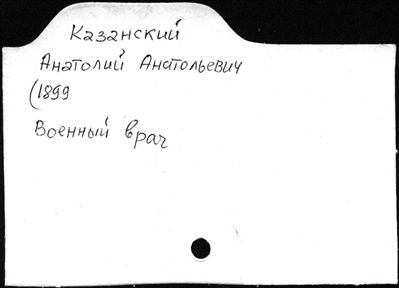 Казанский
Анатолий Анатольевич
(1899
Военный врач